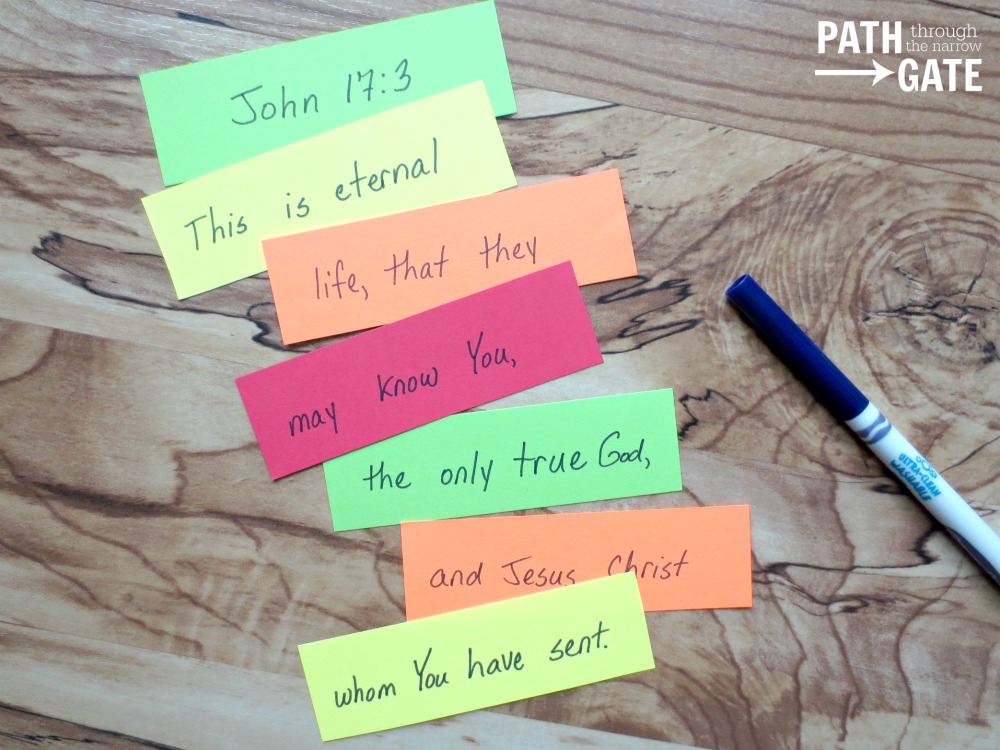 PATH through the narrow GATE
John 17:3
This is eternal
life, that they
may know You,
the only true God,
and Jesus Christ
whom You have sent.
ULTRA-CLEAN
WASHABLE